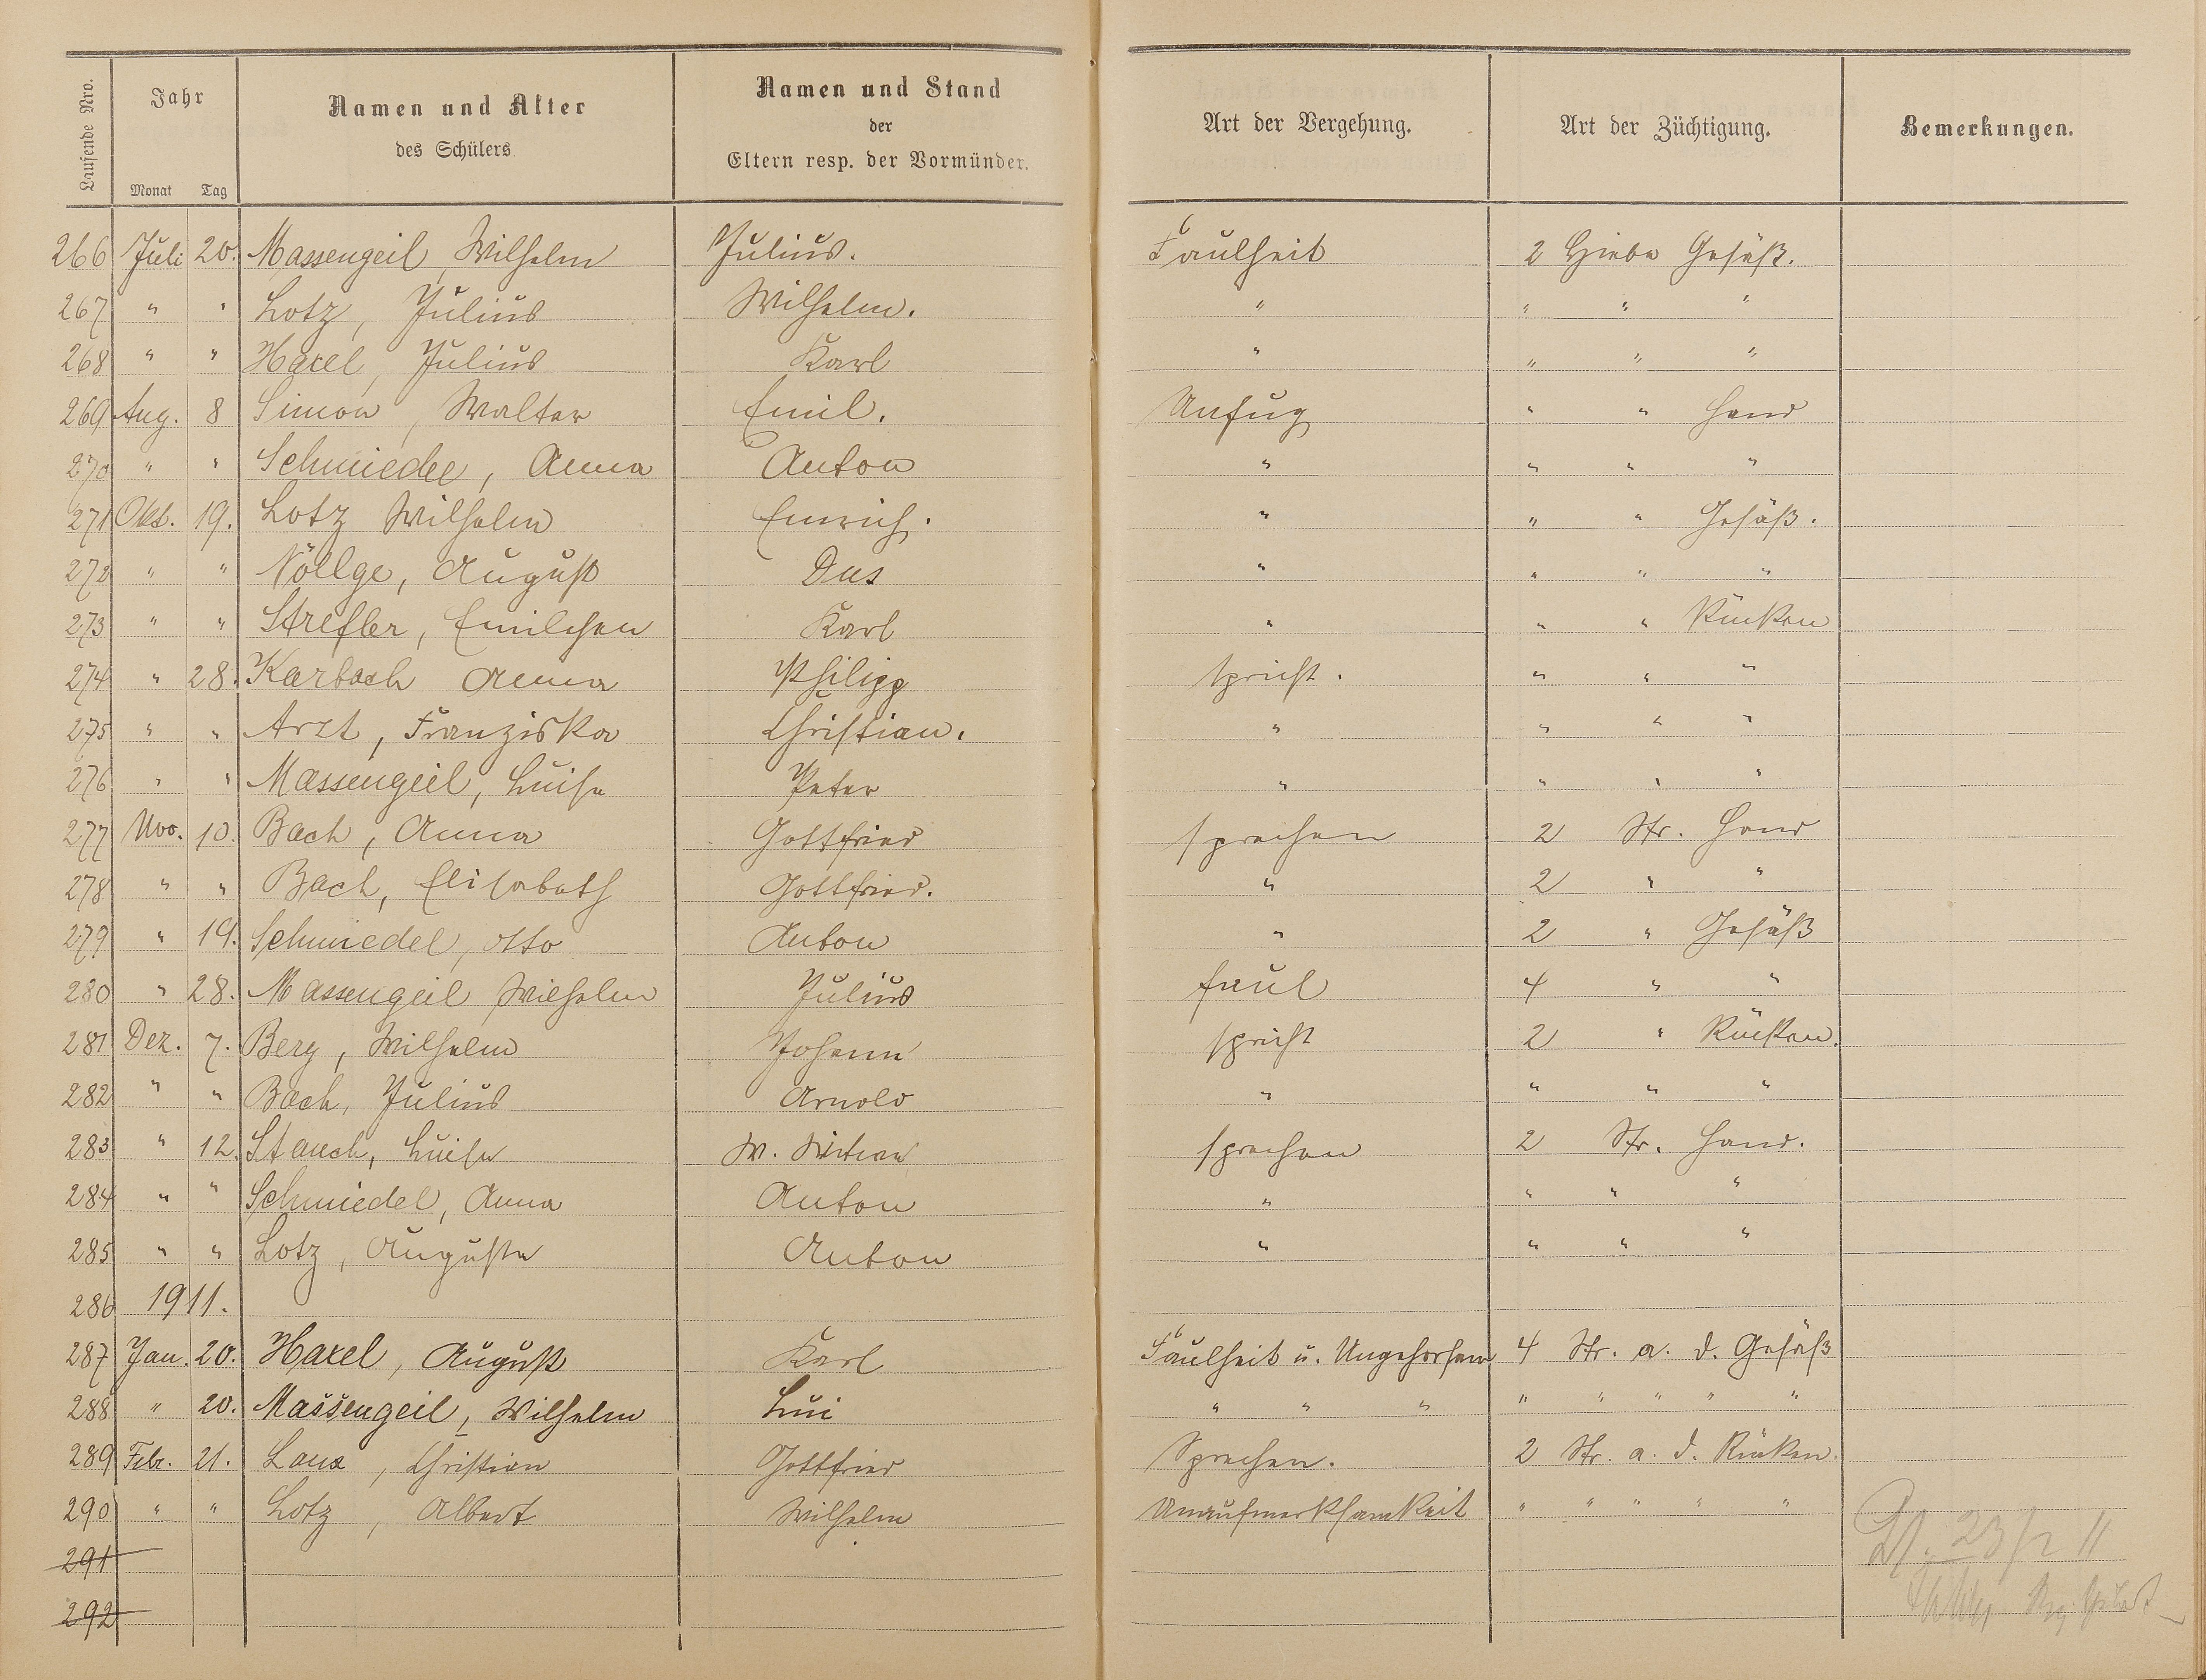 Laufende Nro.
Jahr
Monat Tag
Namen und Alter
des Schülers
Namen und Stand
der
Eltern resp. der Vormünder.
Art der Vergehung.
Art der Züchtigung.
Bemerkungen.
266 Juli 20. Massengeil, Wilhelm Julius. Faulheit 2 Hiebe Gesäß.
267 " " Lotz, Julius Wilhelm. " " " "
268 " " Haxel, Julius Karl " " " "
269 Aug. 8 Simon, Walter Emil. Unfug " " Hand
270 " " Schmiedel, Anna Anton " " " "
271 Okt. 19. Lotz Wilhelm Emrich. " " " Gesäß.
272 " " Nöllge, August " " " "
273 " " Strefler, Emilchen Karl " " " Rücken
274 " 28. Karbach Anna Philipp spricht. " " "
275 " " Arzt, Franziska Christian. " " " "
276 " " Massengeil, Luise Peter " " " "
277 Nov. 10. Bach, Anna Gottfried sprechen 2 Str. Hand
278 " " Bach, Elisabeth Gottfried. " 2 " "
279 " 19. Schmiedel, Otto Anton " 2 " Gesäß
280 " 28. Massengeil, Wilhelm Julius faul 4 " "
281 Dez. 7. Berg, Wilhelm Johann spricht 2 " Rücken.
282 " " Bach, Julius Arnold " " " "
283 " 12. Stauch, Luise W. sprechen 2 Str. Hand.
284 " " Schmiedel, Anna Anton " " " "
285 " " Lotz, Auguste Anton " " " "
286 1911.
287 Jan. 20. Haxel, August Karl Faulheit u. Ungehorsam 4 Str. a. d. Gesäß
288 " 20. Massengeil, Wilhelm Lui " " " " " " " "
289 Febr. 21. Laux, Christian Gottfried Sprechen. 2 Str. a. d. Rücken.
290 " " Lotz, Albert Wilhelm Unaufmerksamkeit " " " " "
291
292